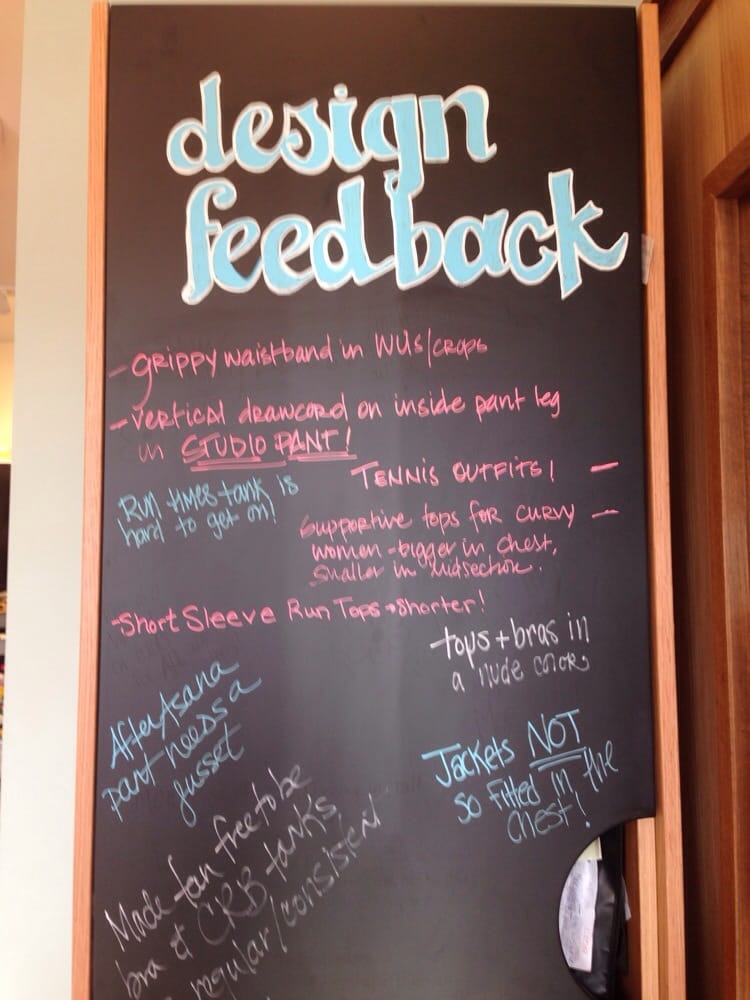 design
feedback
- grippy waistband in WUs/crops
- vertical drawcord on inside pant leg
in STUDIO PANT!
TENNIS OUTFITS! -
Run times tank is
hard to get on!
Supportive tops for curvy -
women - bigger in chest,
smaller in midsection.
- Short Sleeve Run Tops → shorter!
tops + bras in
a nude color
After Asana
pant needs a
gusset
Jackets NOT
so fitted in the
chest!
Made fan free to be
bra & CRB tanks,
regular/consistent